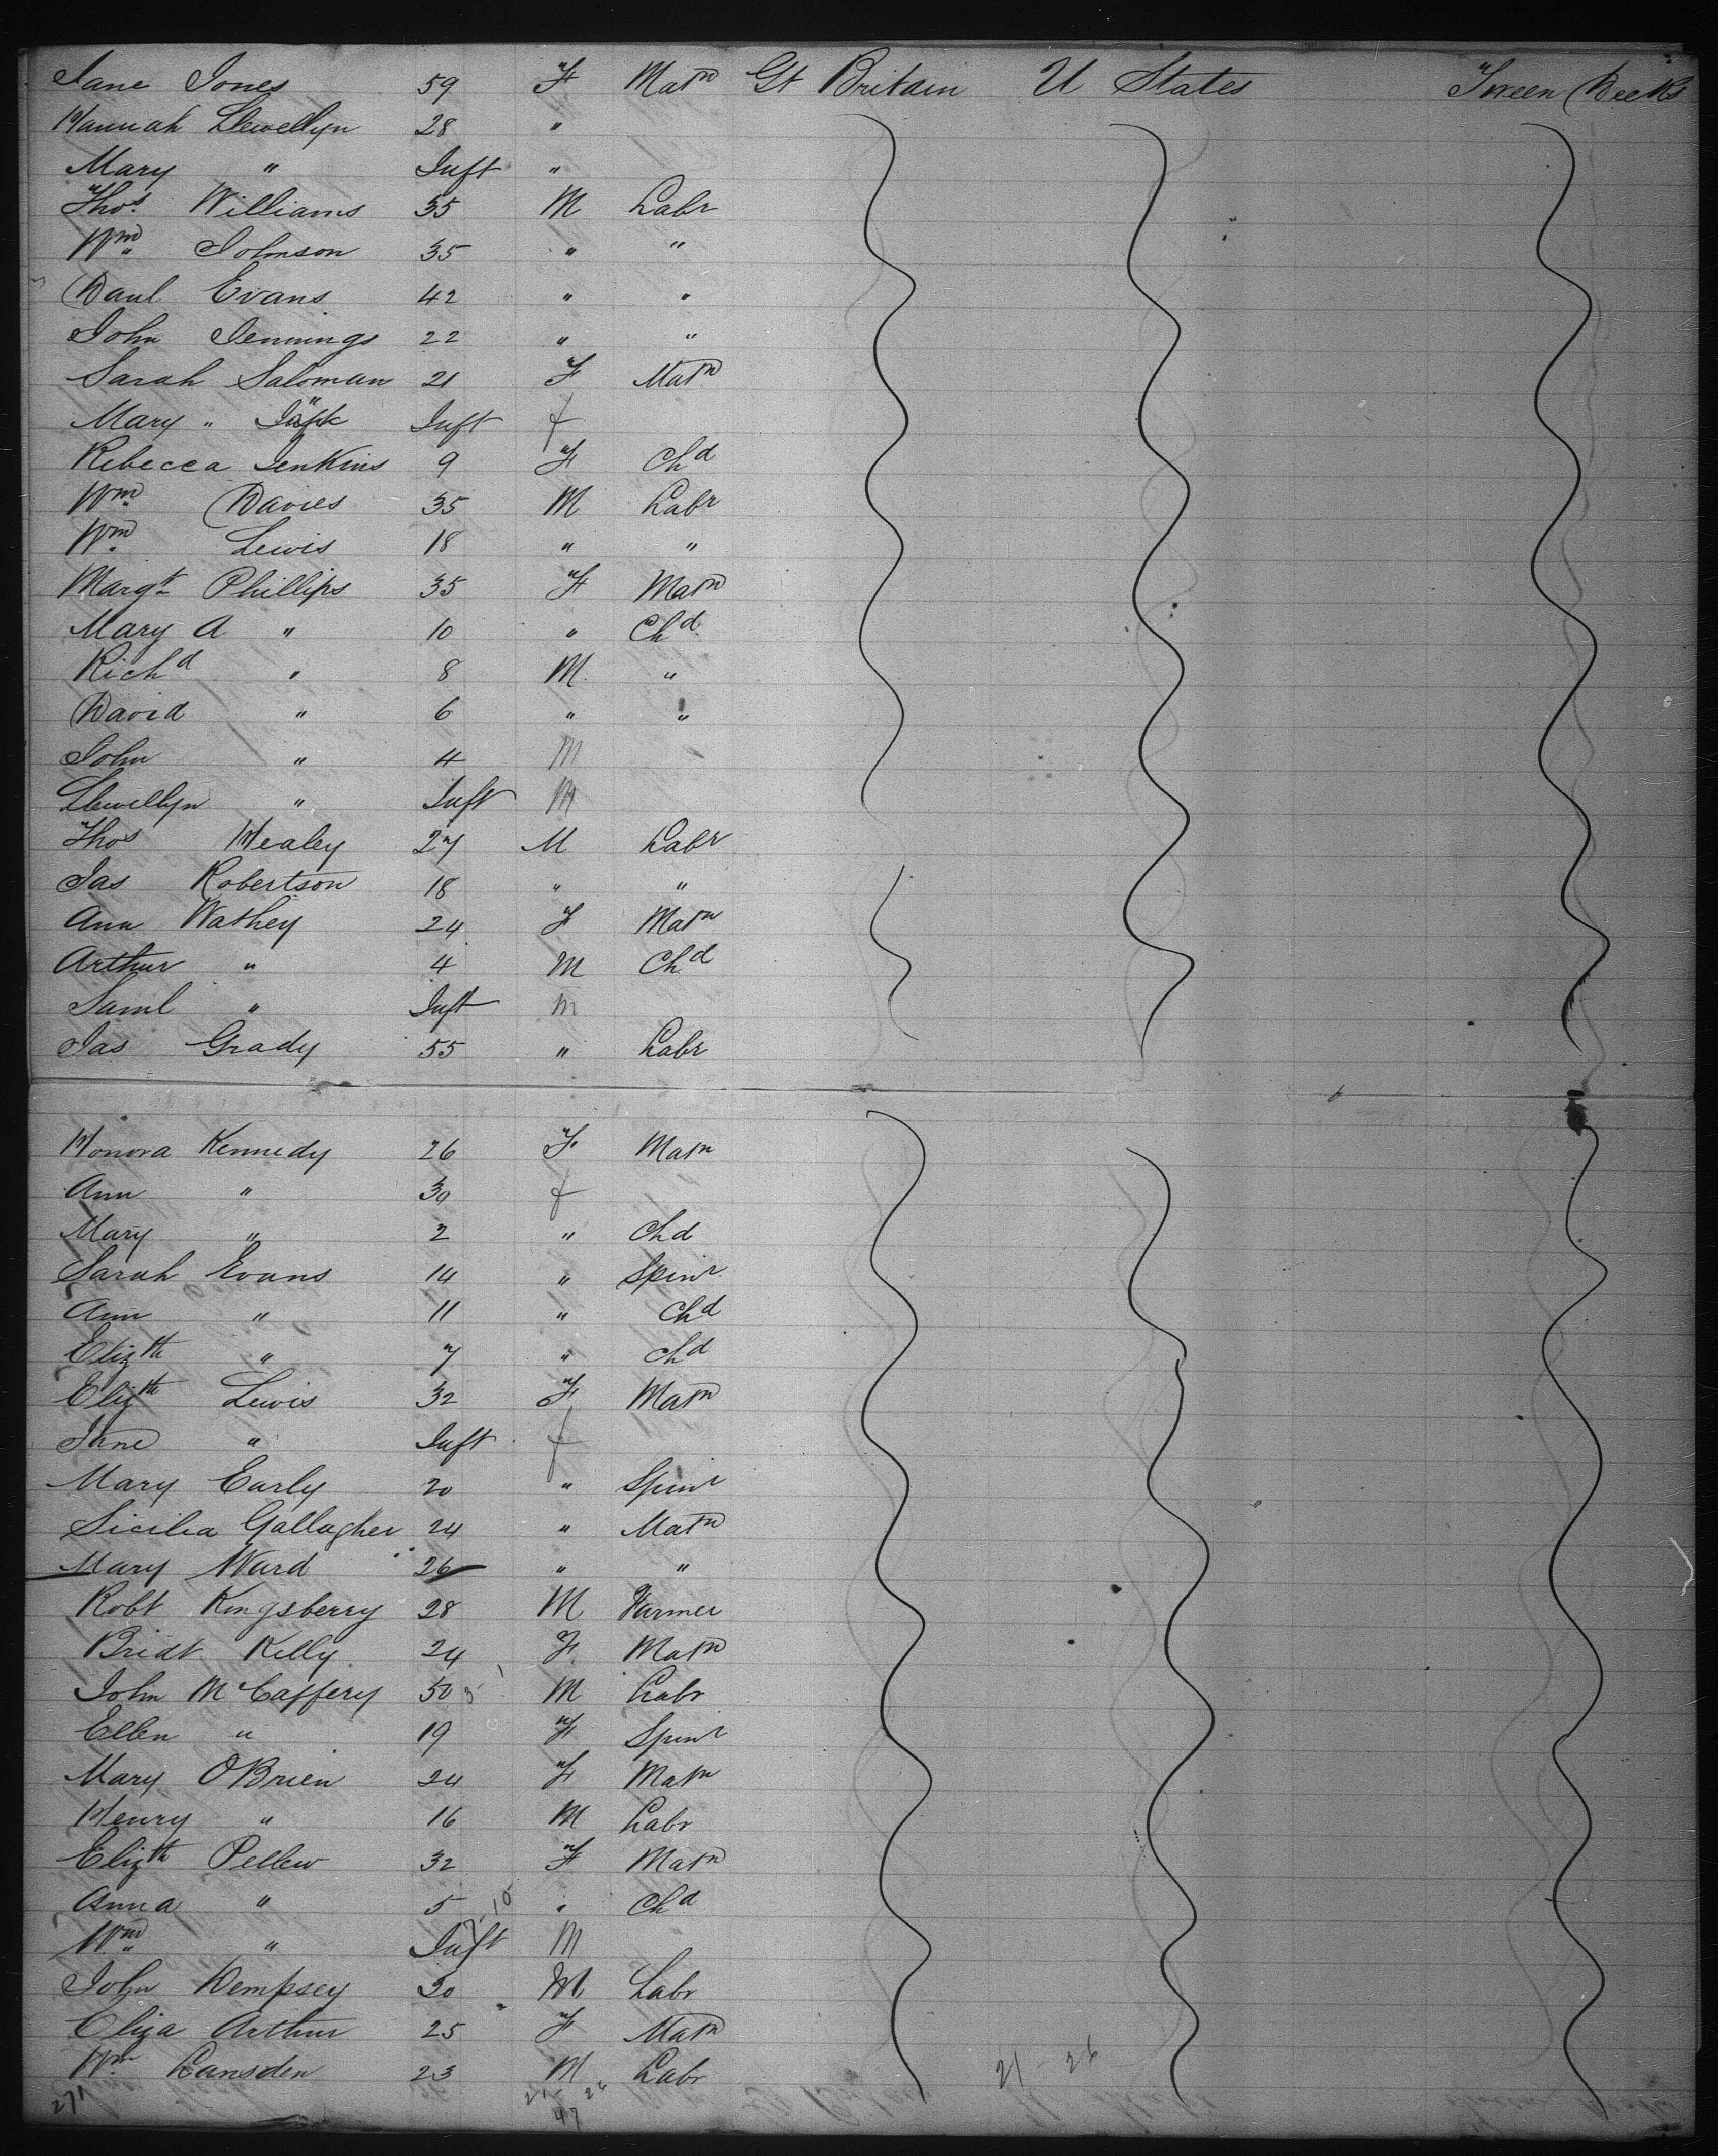 Jane Jones 59 F Matn Gt Britain U States Tween Decks
Hannah Llewellyn 28 "
Mary " Inft "
Thos Williams 35 M Labr
Wm Johnson 35 " "
Danl Evans 42 " "
John Jennings 22 " "
Sarah Saloman 21 F Matn
Mary " Inft f
Rebecca Jenkins 9 F Chd
Wm Davies 35 M Labr
Wm Lewis 18 " "
Margt Phillips 35 F Matn
Mary A " 10 " Chd
Richd " 8 M "
David " 6 " "
John " 4 M
Llewellyn " Inft M
Thos Healey 27 M Labr
Jas Robertson 18 " "
Ann Wathey 24 F Matn
Arthur " 4 M Chd
Saml " Inft M
Jas Grady 55 " Labr
Honora Kennedy 26 F Matn
Ann " 30 f
Mary " 2 " Chd
Sarah Evans 14 " Spinr
Ann " 11 " Chd
Elizth " 7 " Chd
Elizth Lewis 32 F Matn
Jane " Inft f
Mary Early 20 " Spinr
Sicilia Gallagher 24 " Matn
Mary Ward 26 " "
Robt Kingsberry 28 M Farmer
Bridt Kelly 24 F Matn
John McCaffery 50 M Labr
Ellen " 19 F Spinr
Mary OBrien 24 F Matn
Henry " 16 M Labr
Elizth Pellew 32 F Matn
Anna " 5 " Chd
Wm " Inft M
John Dempsey 30 M Labr
Eliza Arthur 25 F Matn
Wm Lansden 23 M Labr
21 - 26
271 21 - 26
47